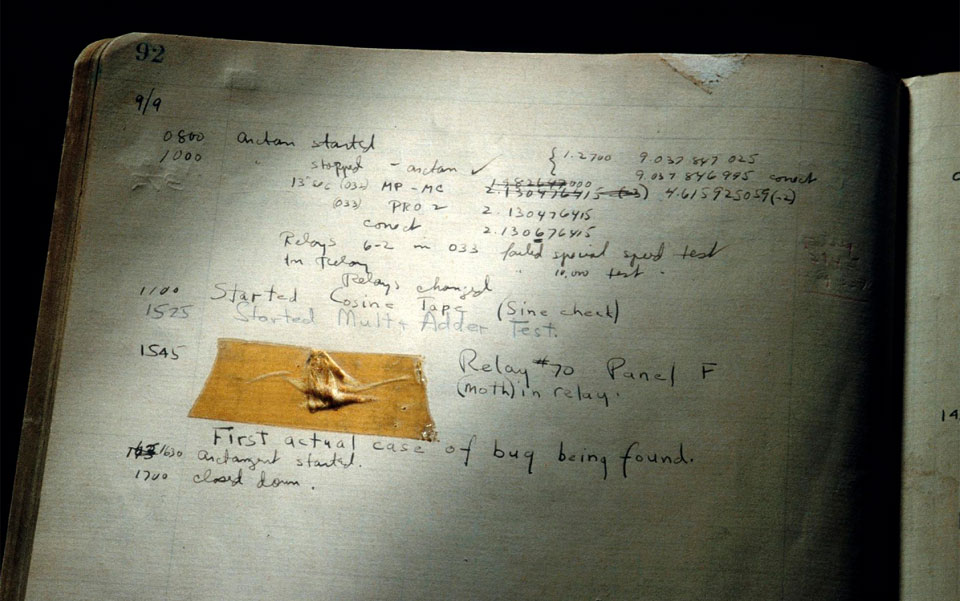 92
9/9
0800 arctan started
1000 " stopped - arctan ✓ { 1.2700 9.037 847 025
9.037 846 995 conect
13"uc (032) MP - MC 1.982647000 2.130476415 (-3) 4.615925059(-2)
(033) PRO 2 2.130476415
conect 2.130676415
Relays 6-2 in 033 failed special speed test
In Relay " 10,000 test "
Relays changed
1100 Started Cosine Tape (Sine check)
1525 Started Mult + Adder Test.
1545 Relay #70 Panel F
(moth) in relay.
First actual case of bug being found.
1630 arctangent started.
1700 closed down.
14